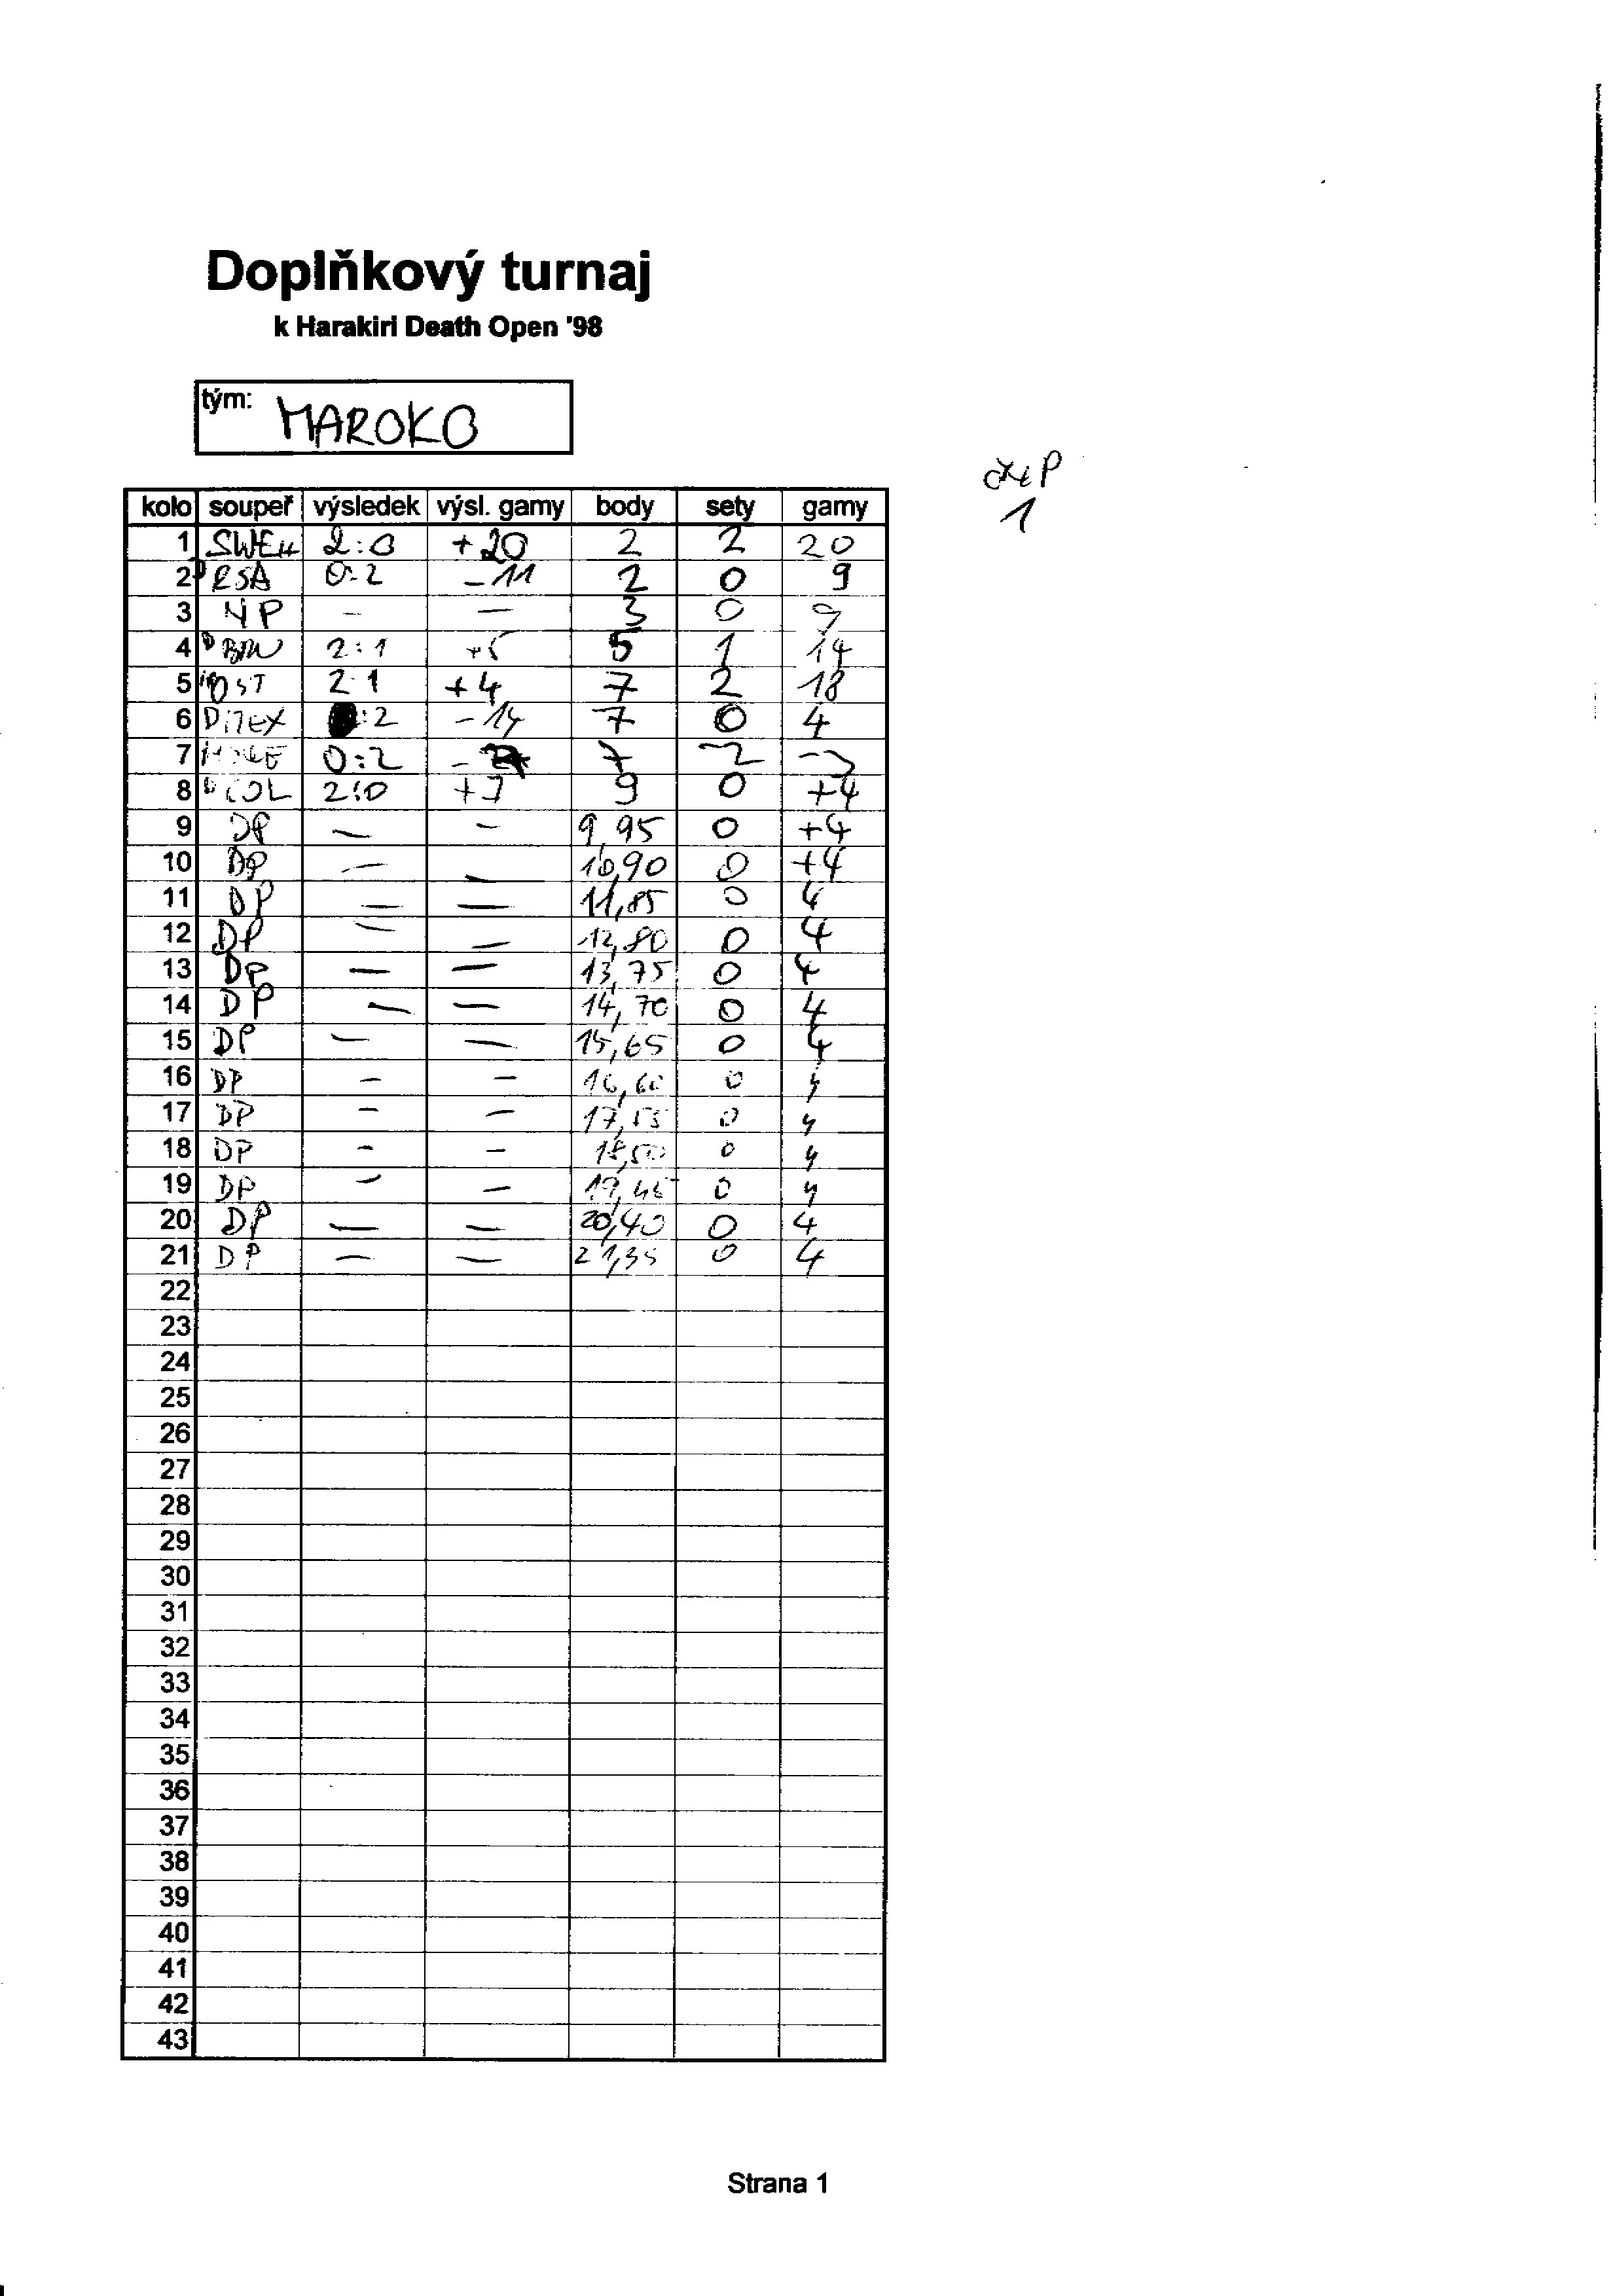 Doplňkový turnaj
k Harakiri Death Open '98
tým: MAROKO
kolo soupeř výsledek výsl. gamy body sety gamy
1 SWE 2:0 +20 2 2 20
2 RSA 0:2 -11 2 0 9
3 NP - - 3 0 9
4 2:1 +5 5 1 14
5 OST 2:1 +4 7 2 18
6 :2 -14 7 0 4
7 0:2 - 7 -2 -3
8 COL 2:0 +7 9 0 +4
9 DP - - 9,95 0 +4
10 DP - - 10,90 0 +4
11 DP - - 11,85 0 4
12 DP - - 12,80 0 4
13 DP - - 13,75 0 4
14 DP - - 14,70 0 4
15 DP - - 15,65 0 4
16 DP - - 16,60 0 4
17 DP - - 17,55 0 4
18 DP - - 18,50 0 4
19 DP - - 19,45 0 4
20 DP - - 20,40 0 4
21 DP - - 21,35 0 4
22
23
24
25
26
27
28
29
30
31
32
33
34
35
36
37
38
39
40
41
42
43
1
Strana 1